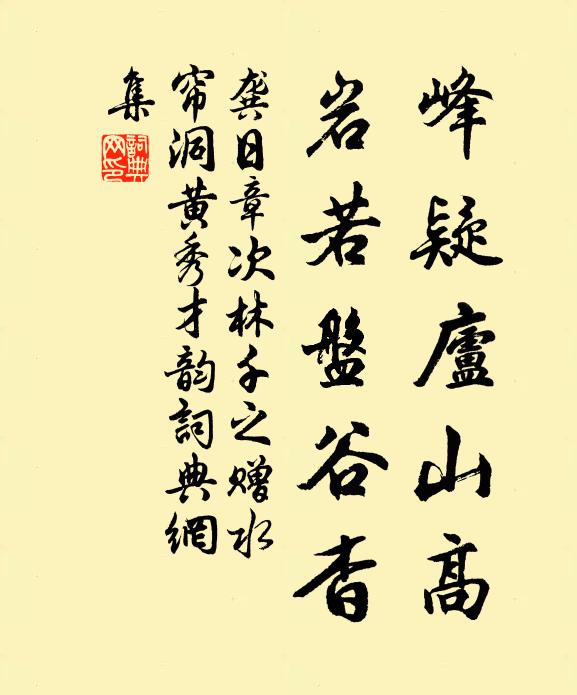 峰疑廬山高
岩若盤谷杳
龚日章次林千之赠水
帘洞黄秀才韵詞典網
集
詞典
网印